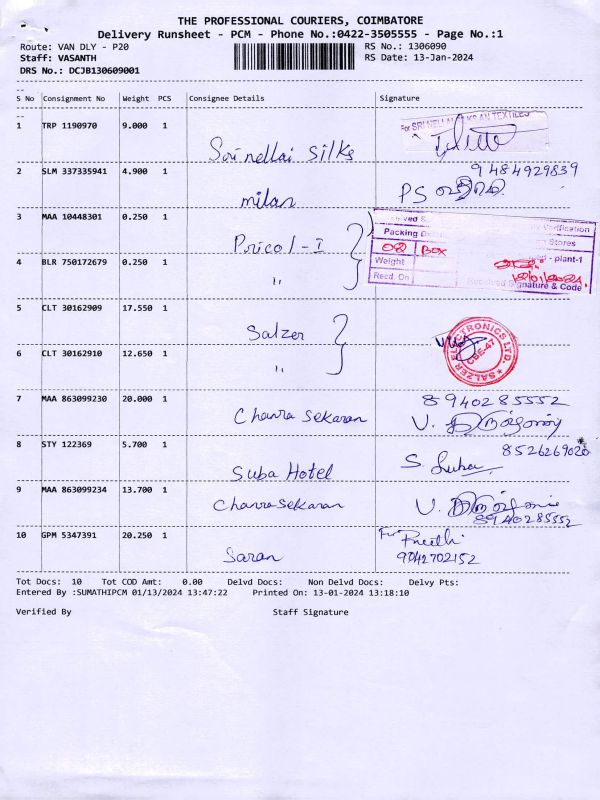 THE PROFESSIONAL COURIERS, COIMBATORE
Delivery Runsheet - PCM - Phone No.:0422-3505555 - Page No.:1
Route: VAN DLY - P20
RS No.: 1306090
Staff: VASANTH
RS Date: 13-Jan-2024
DRS No.: DCJB130609001
S No Consignment No Weight PCS Consignee Details Signature
1 TRP 1190970 9.000 1 Sri nellai Silks For SRI NELLAI TEXTILES
2 SLM 337335941 4.900 1 milan 9484929839
PS
3 MAA 10448301 0.250 1 Pricol - I
Packing
02 BOX Stores
4 BLR 750172679 0.250 1 "
Weight plant-1
Recd. On Received Signature & Code
5 CLT 30162909 17.550 1 Salzer
SALZER ELECTRONICS LTD.
CBE-47
6 CLT 30162910 12.650 1 "
7 MAA 863099230 20.000 1 Chanra Sekaran 8940285552
V.
8 STY 122369 5.700 1 Suba Hotel 8526269020
S. Suba
9 MAA 863099234 13.700 1 Chanra Sekaran V.
8940285552
10 GPM 5347391 20.250 1 Saran Preethi
9042702152
Tot Docs: 10 Tot COD Amt: 0.00 Delvd Docs: Non Delvd Docs: Delvy Pts:
Entered By :SUMATHIPCM 01/13/2024 13:47:22 Printed On: 13-01-2024 13:18:10
Verified By Staff Signature